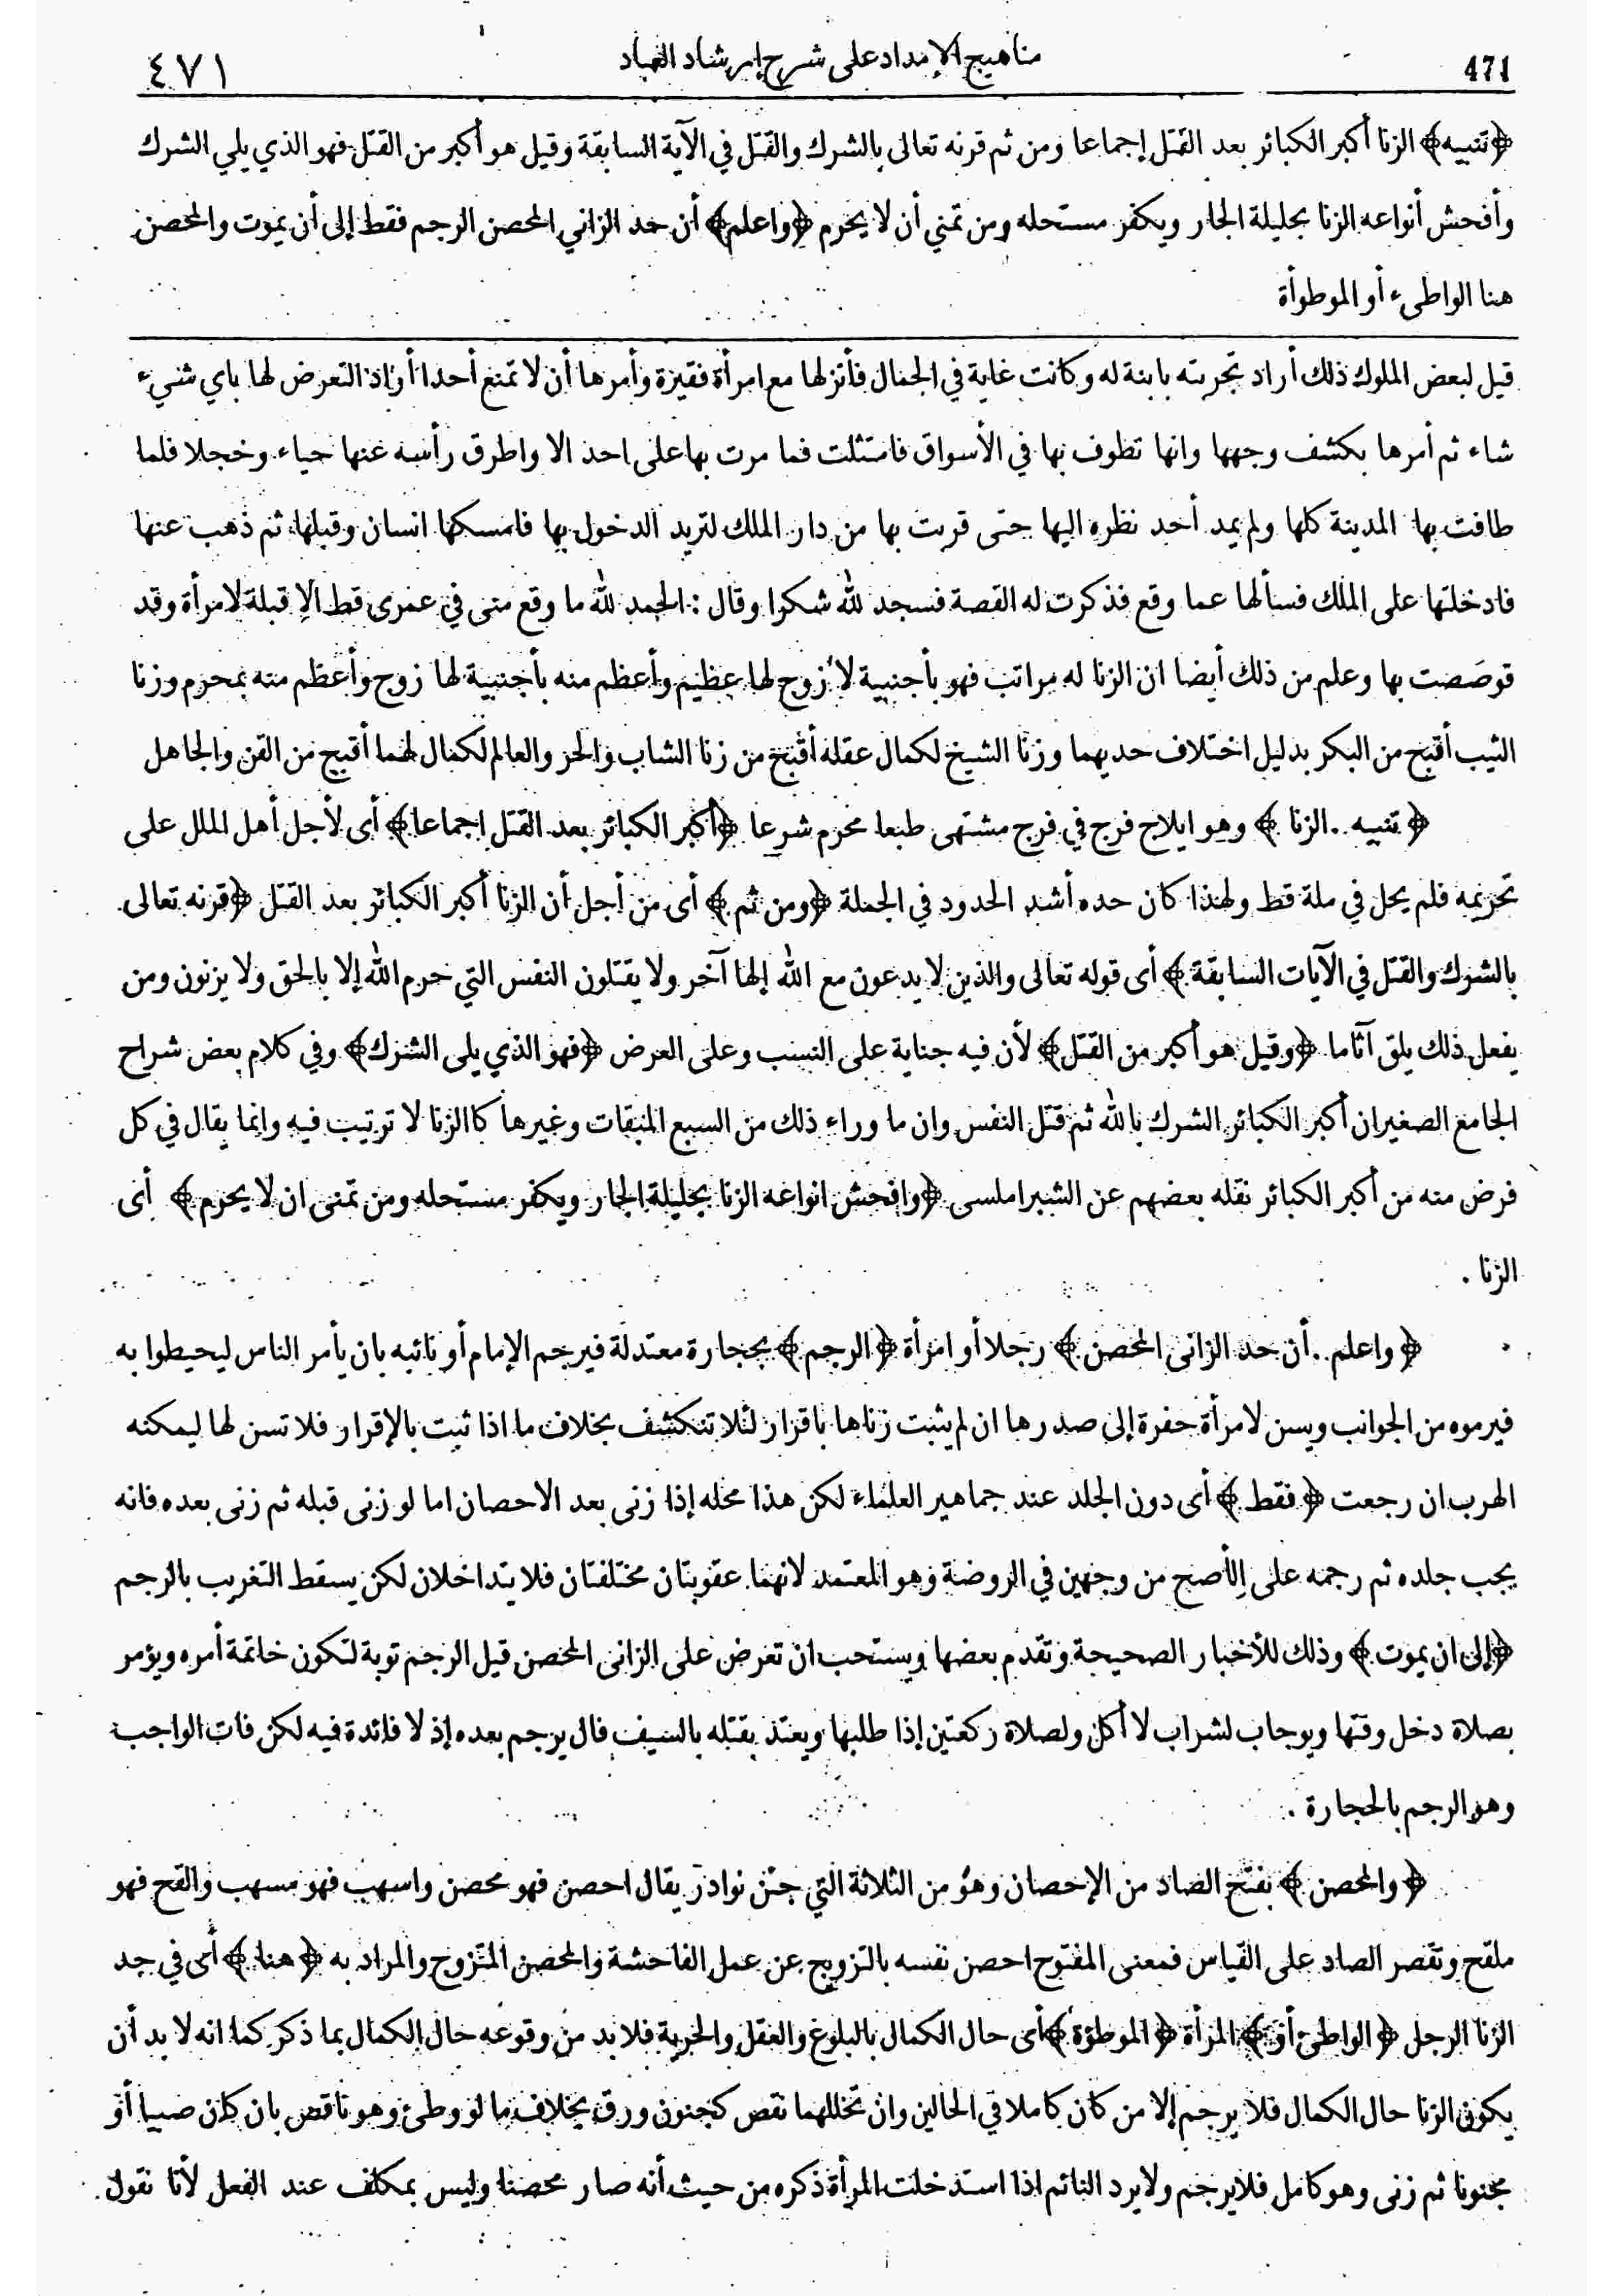 471 مناهيج الإمداد على شرح إرشاد العباد ٤٧١
﴿تنبيه﴾ الزنا أكبر الكبائر بعد القتل إجماعا ومن ثم قرنه تعالى بالشرك والقتل في الآية السابقة وقيل هو أكبر من القتل فهو الذي يلي الشرك
وأفحش أنواعه الزنا بحليلة الجار ويكفر مستحله ومن تمني أن لا يحرم ﴿واعلم﴾ أن حد الزاني المحصن الرجم فقط إلى أن يموت والمحصن
هنا الواطىء أو الموطوأة
قيل لبعض الملوك ذلك أراد تجربته بابنة له وكانت غاية في الجمال فأنزلها مع امرأة فقيرة وأمرها أن لا تمنع أحدا أراد التعرض لها باي شيء
شاء ثم أمرها بكشف وجهها وانها تطوف بها في الأسواق فامتثلت فما مرت بها على احد الا واطرق رأسه عنها حياء وخجلا فلما
طافت بها المدينة كلها ولم يمد أحد نظره اليها حتى قربت بها من دار الملك لتريد الدخول بها فامسكها انسان وقبلها ثم ذهب عنها
فادخلتها على الملك فسألها عما وقع فذكرت له القصة فسجد لله شكرا وقال : الحمد لله ما وقع منى في عمرى قط إلا قبلة لامرأة وقد
قوصصت بها وعلم من ذلك أيضا ان الزنا له مراتب فهو بأجنبية لا زوج لها عظيم وأعظم منه بأجنبية لها زوج وأعظم منه بمحرم وزنا
الثيب أقبح من البكر بدليل اختلاف حديهما وزنا الشيخ لكمال عقله أقبح من زنا الشاب والحر والعالم لكمال لهما أقبح من القن والجاهل
﴿تنبيه . . الزنا﴾ وهو ايلاج فرج في فرج مشتهى طبعا محرم شرعا ﴿أكبر الكبائر بعد القتل اجماعا﴾ أى لأجل أهل الملل على
تحريمه فلم يحل في ملة قط ولهذا كان حده أشد الحدود في الجملة ﴿ومن ثم﴾ أى من أجل أن الزنا أكبر الكبائر بعد القتل ﴿قرنه تعالى
بالشرك والقتل في الآيات السابقة﴾ أى قوله تعالى والذين لا يدعون مع الله إلها آخر ولا يقتلون النفس التي حرم الله إلا بالحق ولا يزنون ومن
يفعل ذلك يلق آثاما ﴿وقيل هو أكبر من القتل﴾ لأن فيه جناية على النسب وعلى العرض ﴿فهو الذي يلى الشرك﴾ وفي كلام بعض شراح
الجامع الصغير ان أكبر الكبائر الشرك بالله ثم قتل النفس وان ما وراء ذلك من السبع المنبقات وغيرها كاالزنا لا ترتيب فيه وانما يقال في كل
فرض منه من أكبر الكبائر نقله بعضهم عن الشبراملسى ﴿وافحش انواعه الزنا بحليلة الجار ويكفر مستحله ومن تمنى ان لا يحرم﴾ أى
الزنا .
﴿واعلم . . أن حد الزانى المحصن﴾ رجلا أو امرأة ﴿الرجم﴾ بحجارة معتدلة فيرجم الإمام أو نائبه بان يأمر الناس ليحيطوا به
فيرموه من الجوانب ويسن لامرأة حفرة إلى صدرها ان لم يثبت زناها باقرار لئلا تنكشف بخلاف ما اذا ثبت بالإقرار فلا تسن لها ليمكنه
الهرب ان رجعت ﴿فقط﴾ أى دون الجلد عند جماهير العلماء لكن هذا محله إذا زنى بعد الاحصان اما لو زنى قبله ثم زنى بعده فانه
يجب جلده ثم رجمه على الأصح من وجهين في الروضة وهو المعتمد لانهما عقوبتان مختلفتان فلا يتداخلان لكن يسقط التغريب بالرجم
﴿إلى ان يموت﴾ وذلك للأخبار الصحيحة وتقدم بعضها ويستحب ان تعرض على الزانى المحصن قيل الرجم توبة لتكون خاتمة أمره ويؤمر
بصلاة دخل وقتها ويوجاب لشراب لا أكل ولصلاة ركعتين إذا طلبها ويعتد بقتله بالسيف فال يرجم بعده إذ لا فائدة فيه لكن فات الواجب
وهو الرجم بالحجارة .
﴿والمحصن﴾ بفتح الصاد من الإحصان وهو من الثلاثة التي جئن نوادر يقال احصن فهو محصن واسهب فهو مسهب والقح فهو
ملقح وتقصر الصاد على القياس فمعنى المفتوح احصن نفسه بالتزويج عن عمل الفاحشة والمحصن المتزوج والمراد به ﴿هنا﴾ أى في حد
الزنا الرجل ﴿الواطئ أو﴾ المرأة ﴿الموطؤة﴾ أى حال الكمال بالبلوغ والعقل والحرية فلابد من وقوعه حال الكمال بما ذكر كما انه لا بد أن
يكون الزنا حال الكمال فلا يرجم إلا من كان كاملا في الحالين وان تخللهما نقص كجنون ورق بخلاف ما لو وطئ وهو ناقص بان كان صبيا أو
مجنونا ثم زنى وهو كامل فلا يرجم ولا يرد النائم اذا استدخلت المرأة ذكره من حيث أنه صار محصنا وليس بمكلف عند الفعل لأنا نقول